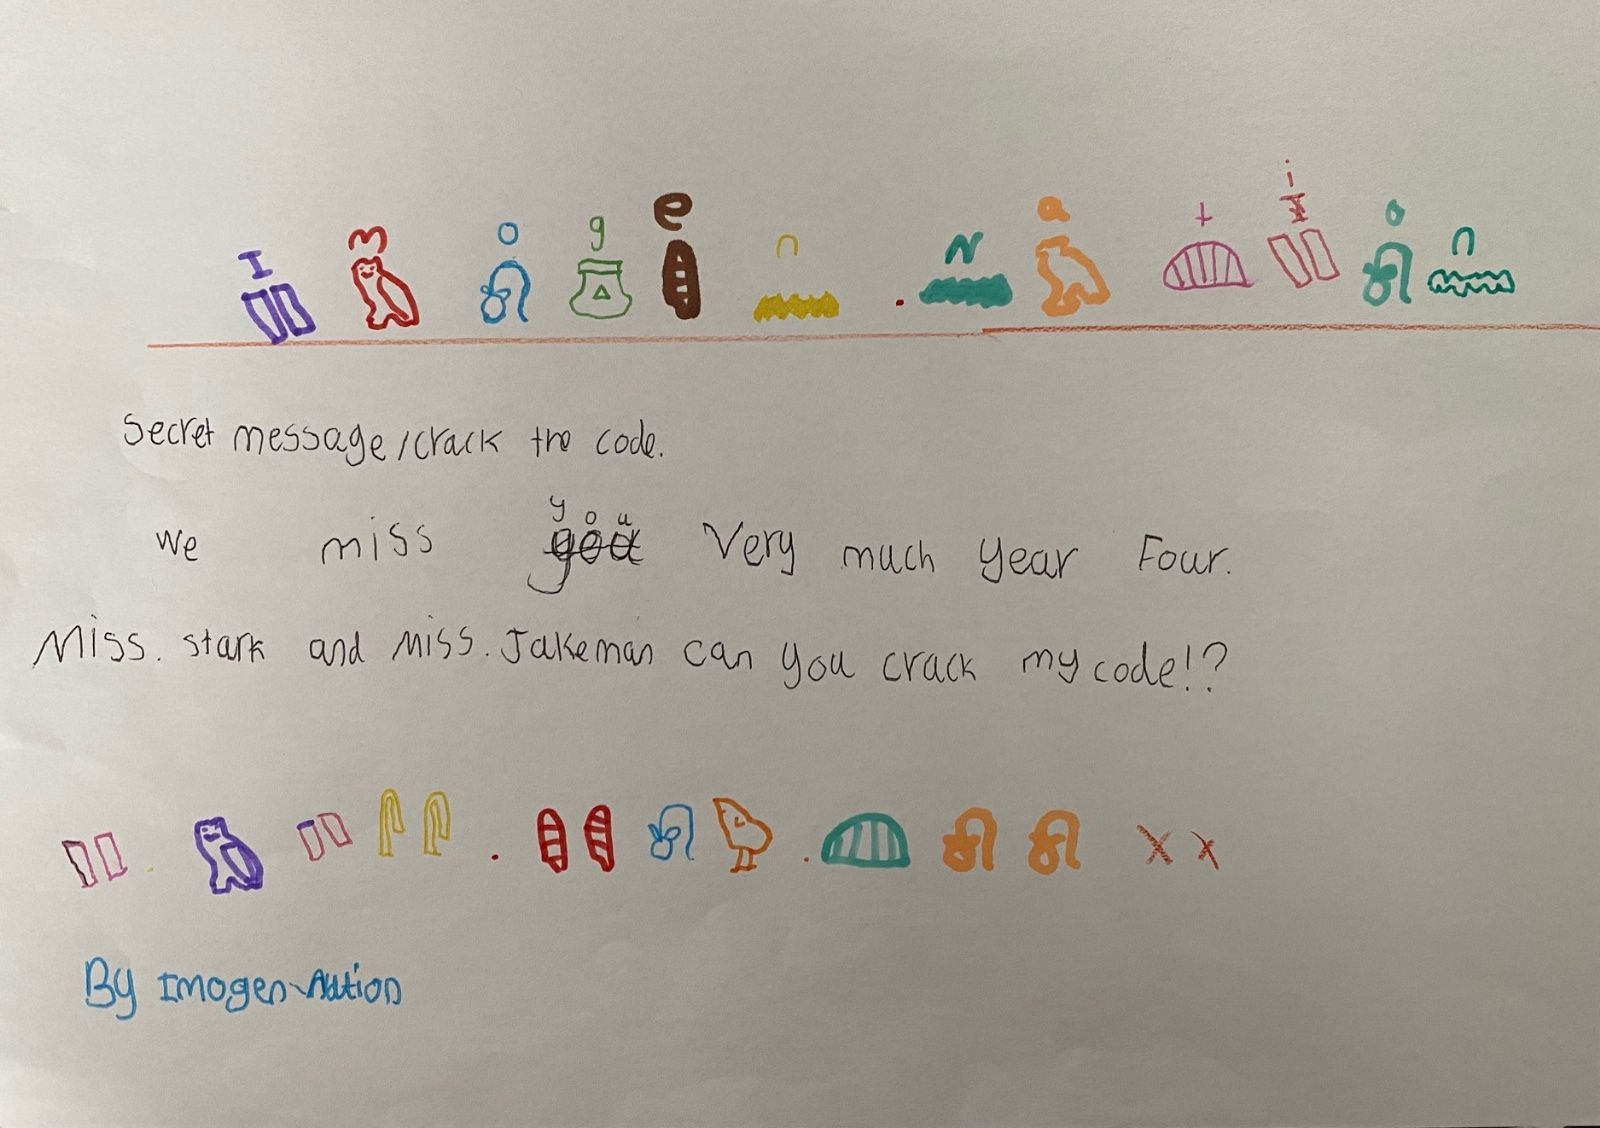 I M o g e n . N a t i o n
Secret message/crack the code.
we miss you Very much year Four.
Miss. stark and Miss. Jakeman can you crack my code!?
. . . x x
By Imogen-Nation